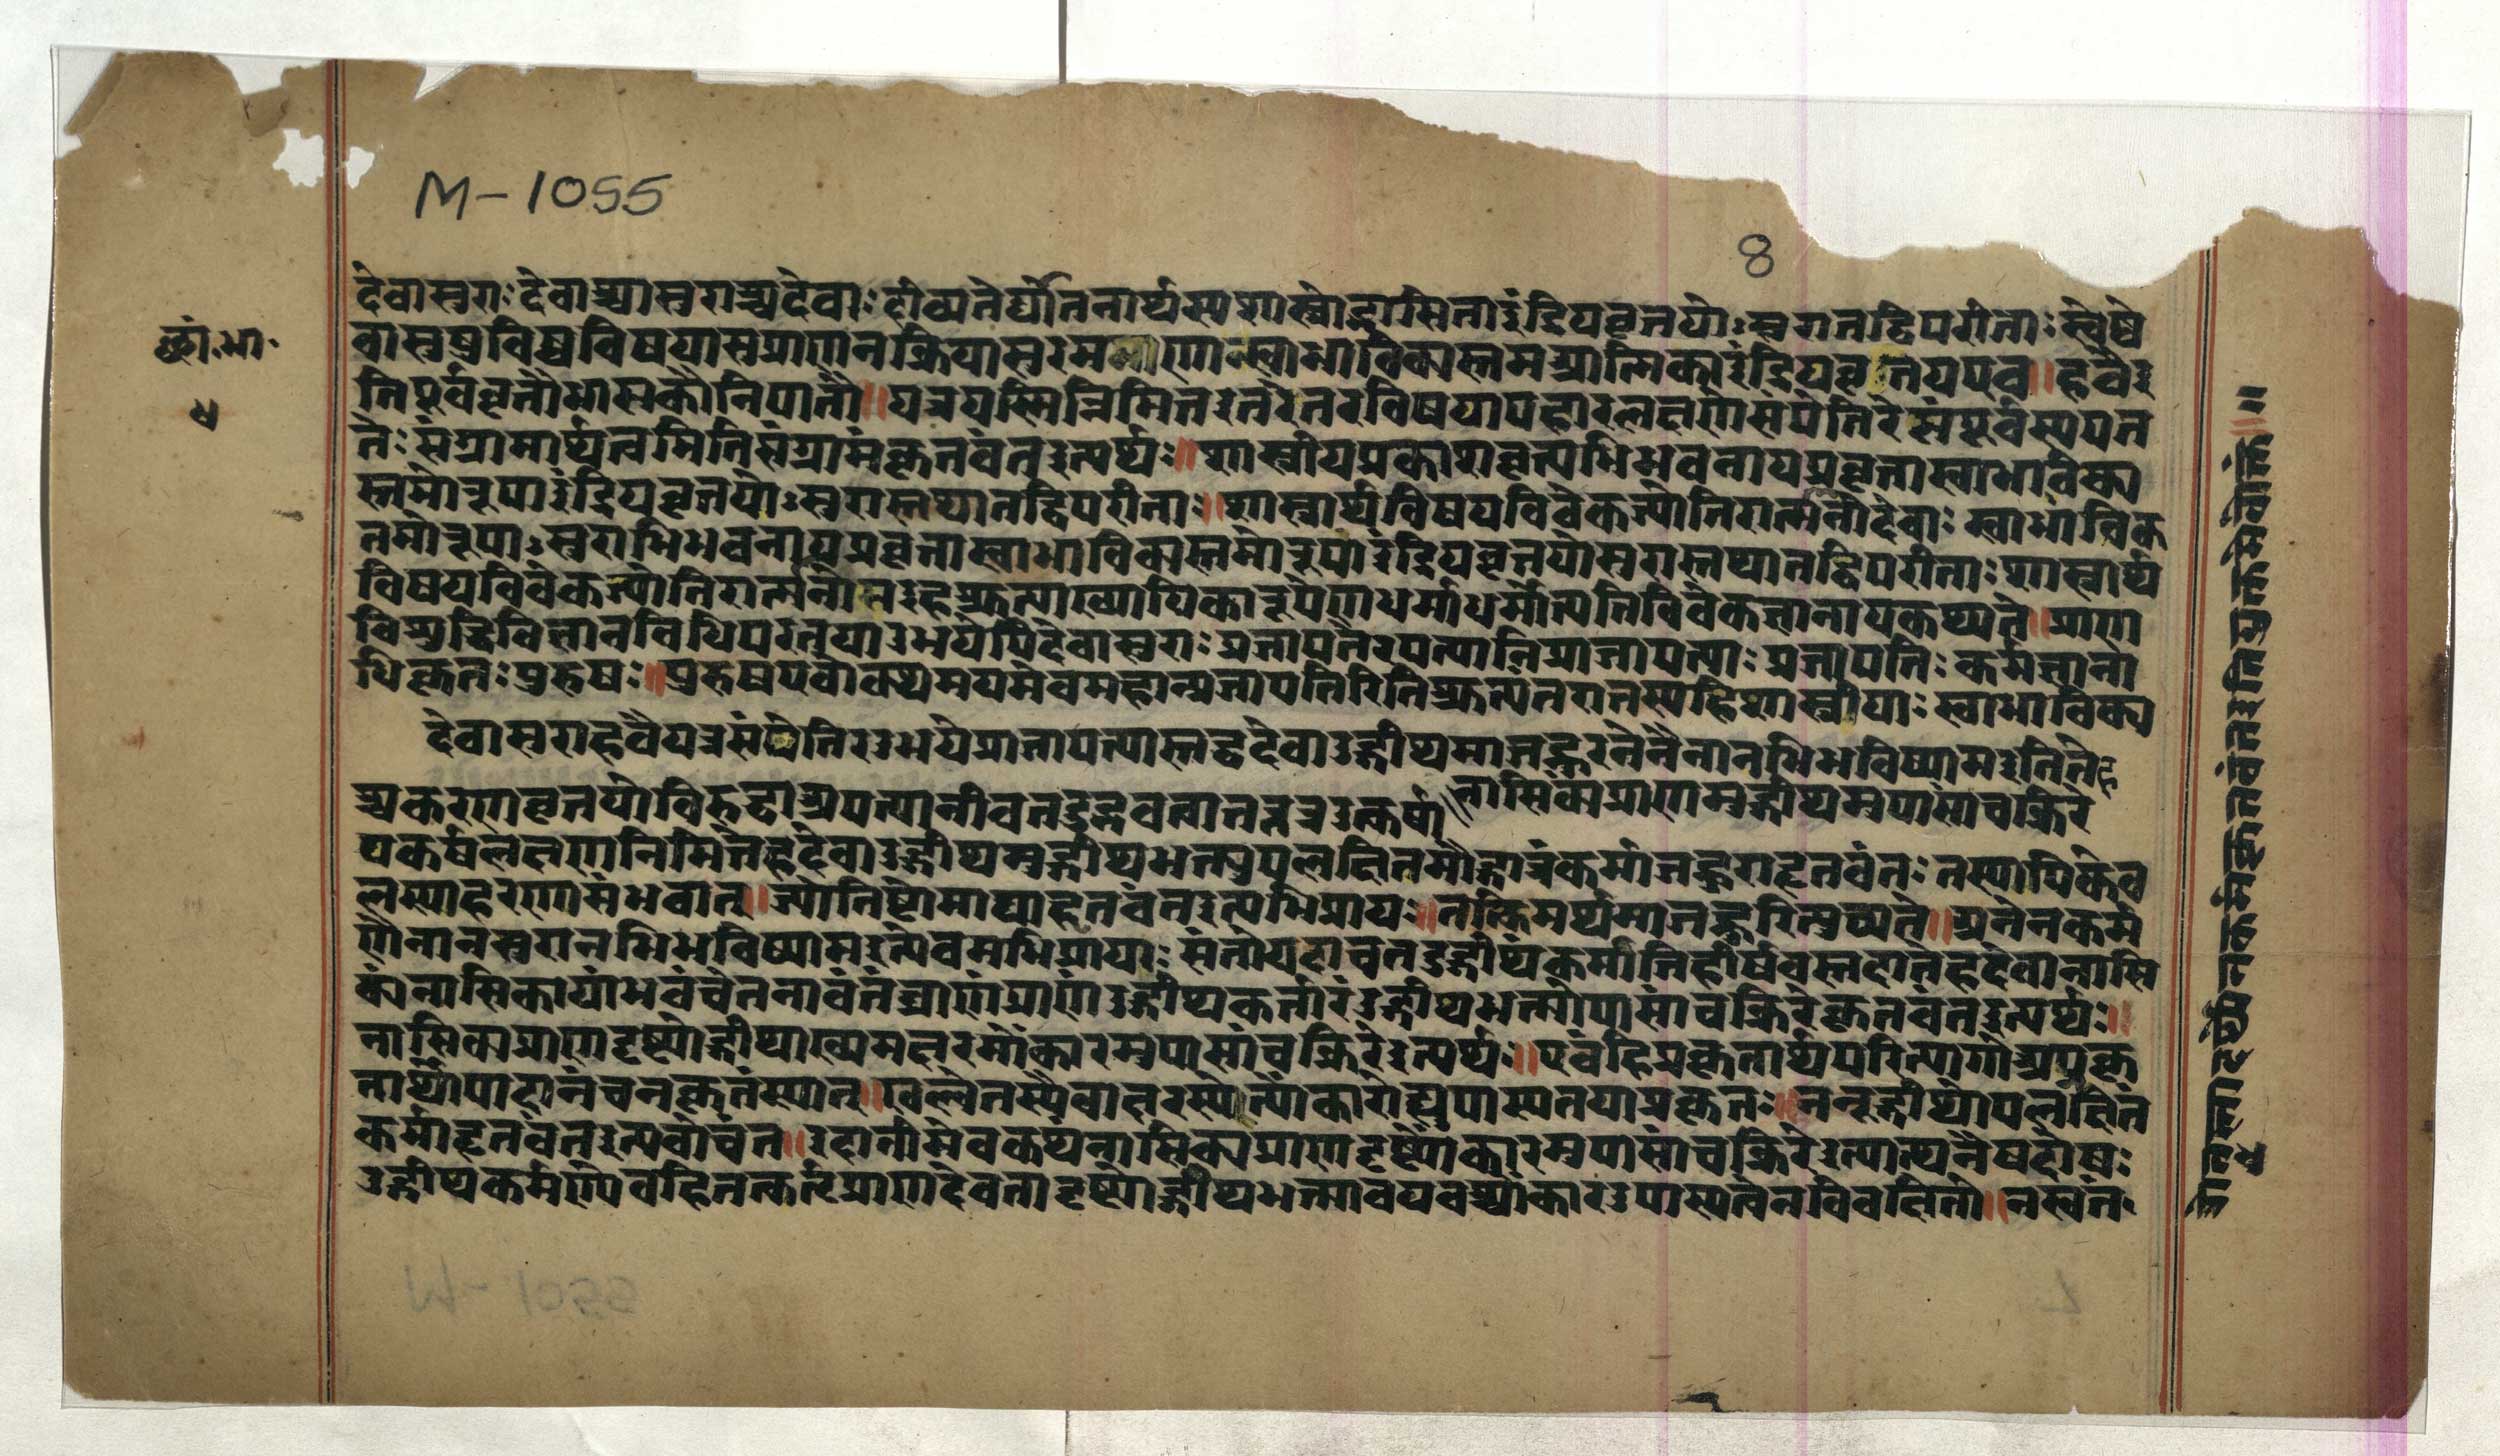 M-1055
8
छां.भा.
४
देवासुराः देवाश्चासुराश्च देवाः दीव्यतेर्द्योतनार्थस्य शास्त्रोद्भासिता इंद्रियवृत्तयोः सुरास्तद्विपरीताः स्वेष्वे
वासुषु विष्वविषयासु प्राणनक्रियासु रमणात्स्वाभाविक्यस्तमआत्मिका इंद्रियवृत्तय एव ॥ ह वै इ
ति पूर्ववृत्तोभासकौ निपातौ ॥ यत्र यस्मिन्निमित्त इतरेतरविषयापहारलक्षणे संयेतिरे संपूर्वस्य यत
तेः संग्रामार्थत्वमिति संग्रामं कृतवंत इत्यर्थः ॥ शास्त्रीयप्रकाशवृत्त्यभिभवनाय प्रवृत्ता स्वाभाविक्य
स्तमोरूपा इंद्रियवृत्तयोः सुरास्तथा तद्विपरीताः ॥ शास्त्रार्थविषयविवेकज्योतिरात्मनो देवाः स्वाभाविक
तमोरूपाः सुराभिभवनाय प्रवृत्ता स्वाभाविक्यस्तमोरूपा इंद्रियवृत्तयोसुरास्तथा तद्विपरीताः शास्त्रार्थ
विषयविवेकज्योतिरात्मनो स इह श्रुत्याख्यायिकारूपेण धर्माधर्मोत्पत्तिविवेकज्ञानाय कथ्यते ॥ प्राण
विशुद्धिविज्ञानविधिपरतया उभयेपि देवासुराः प्रजापतेरपत्यानि प्राजापत्याः प्रजापतिः कर्मज्ञाना
धिकृतः पुरुषः ॥ पुरुष एवोक्थमयमेव महान्प्रजापतिरिति श्रुत्यंतरात्तस्य हि शास्त्रीयाः स्वाभाविक्य
देवासुरा ह वै यत्र संयेतिर उभये प्राजापत्यास्तद्ध देवा उद्गीथमाजह्रुरनेनैनानभिभविष्याम इति ते ह
नासिक्यं प्राणमुद्गीथमुपासांचक्रिरे
श्च करणवृत्तयो विरुद्धा अपत्यानीव तदुद्भवत्वात् तत्तत्र उत्कर्षा
पकर्षलक्षणनिमित्ते ह देवा उद्गीथमुद्गीथभक्त्युपलक्षितमौद्गात्रं कर्माजह्रुराहृतवंतः तस्यापि केव
लस्याहरणासंभवात् ॥ ज्योतिष्टोमाद्याहृतवंत इत्यभिप्रायः ॥ तत्किमर्थमाजह्रुरित्युच्यते ॥ अनेन कर्म
णैनानसुरानभिभविष्याम इत्येवमभिप्रायाः संतो यदा च तदुद्गीथं कर्माजिहीर्षवस्तदा ते ह देवा नासि
क्यं नासिकायां भवं चेतनावंतं घ्राणं प्राण उद्गीथकर्तारं उद्गीथभक्त्योपासांचक्रिरे कृतवंत इत्यर्थः ॥
नासिक्यप्राणदृष्ट्योद्गीथाख्यमक्षरमोंकारमुपासांचक्रिरे इत्यर्थः ॥ एवं हि प्रकृतार्थपरित्यागो अप्रकृ
तार्थोपादानं च न कृतं स्यात् ॥ खल्वेतस्यैवाक्षरस्येत्योंकारो ह्युपास्यतया प्रकृतः ॥ ननूद्गीथोपलक्षितं
कर्माहृतवंत इत्यवोचंत ॥ इदानीमेव कथं नासिक्यप्राणदृष्ट्योंकारमुपासांचक्रिरे इत्यात्थ नैष दोषः
उद्गीथकर्मण्येव हि तत्कर्तृप्राणदेवतादृष्ट्योद्गीथभक्त्यावयवश्चोंकार उपास्यत्वेन विवक्षितो ॥ न स्वतं